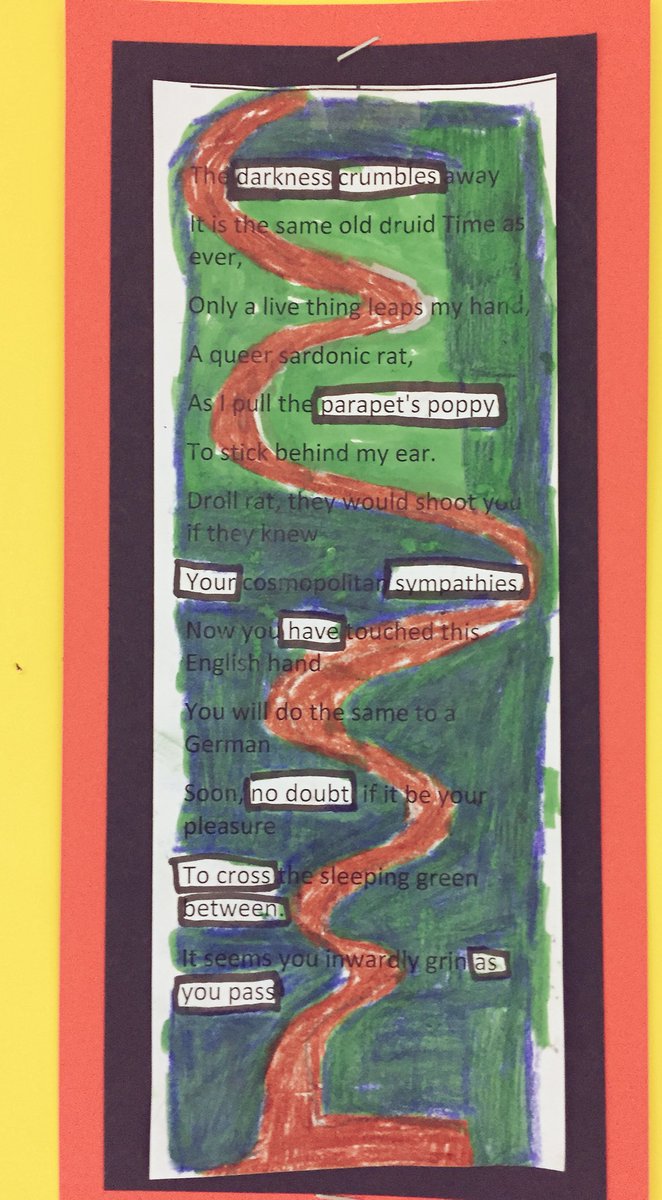 The darkness crumbles away
It is the same old druid Time as
ever,
Only a live thing leaps my hand,
A queer sardonic rat,
As I pull the parapet's poppy
To stick behind my ear.
Droll rat, they would shoot you
if they knew
Your cosmopolitan sympathies.
Now you have touched this
English hand
You will do the same to a
German
Soon, no doubt, if it be your
pleasure
To cross the sleeping green
between.
It seems you inwardly grin as
you pass